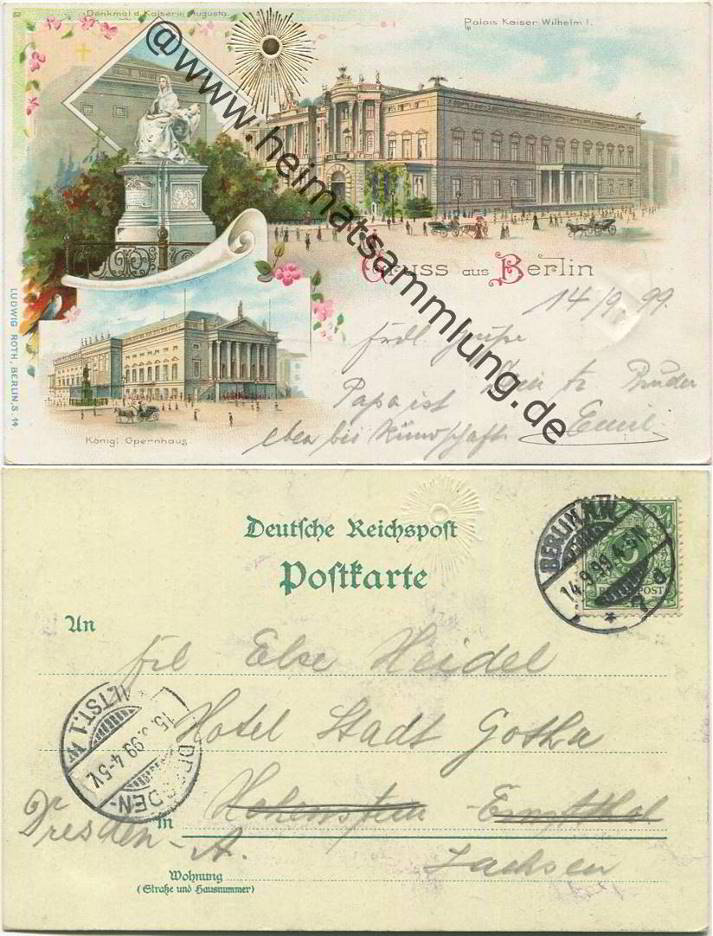 Denkmal d. Kaiserin Augusta.
Palais Kaiser Wilhelm I.
@www.heimatsammlung.de
Gruss aus Berlin
14/9. 99.
Papa ist
Bruder
eben bei Kundschaft.
Emil
Königl. Opernhaus
LUDWIG ROTH, BERLIN, S. 14
Deutsche Reichspost
Postkarte
BERLIN.NW
14.9.99.4-5N
An
Frl Else Heidel
Hotel Stadt Gotha
DRESDEN-ALTST.1 W
15.9.99.4-5V.
In Hohenstein-Ernstthal
Dresden-A.
Sachsen
Wohnung
(Straße und Hausnummer)